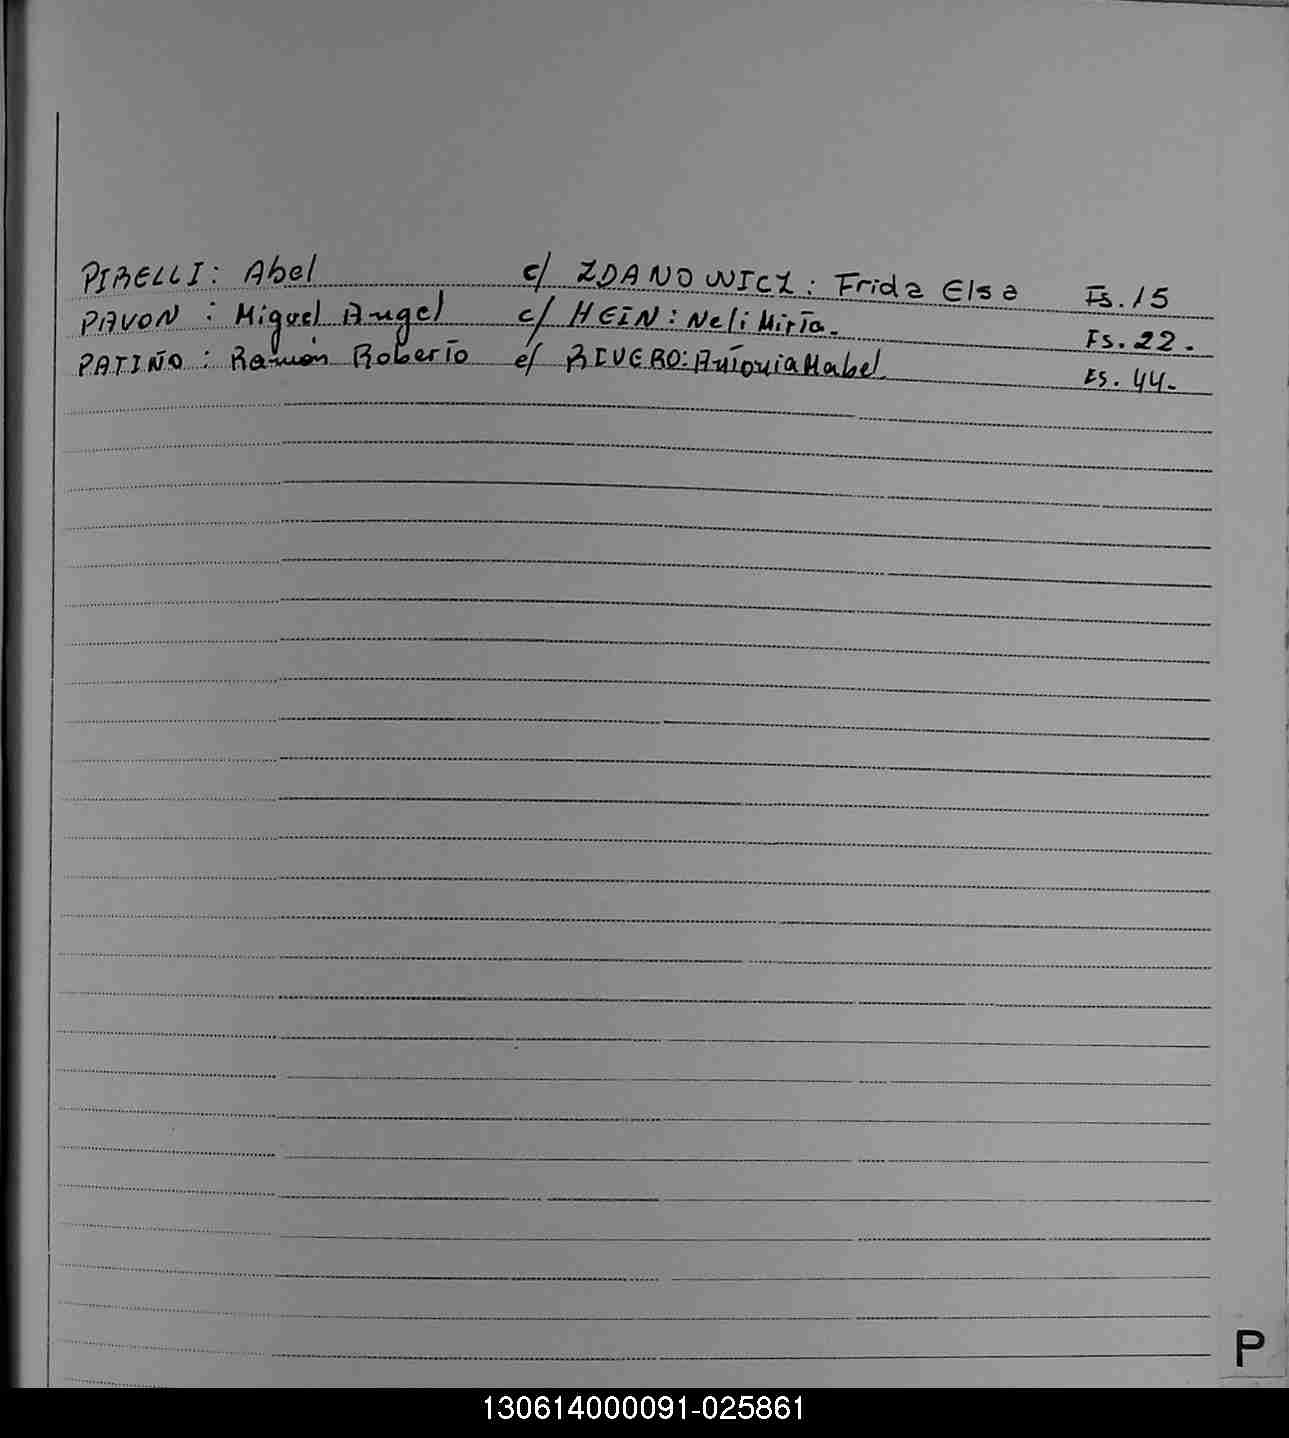 PIRELLI: Abel c/ ZDANOWICZ: Frida Elsa Fs. 15
PAVON: Miguel Angel c/ HEIN: Neli Mirta. Fs. 22.
PATIÑO: Ramón Roberto c/ RIVERO: Antonia Mabel Fs. 44.
P
130614000091-025861